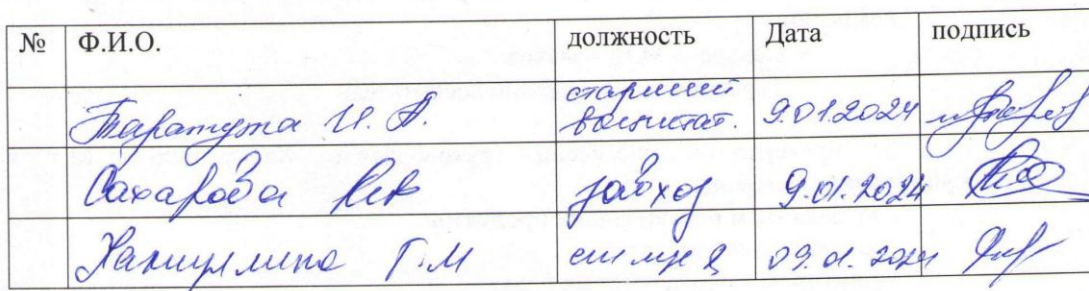 № Ф.И.О. должность Дата подпись
Таратута И. А. старший воспитат. 9.01.2024
Сахарова завхоз 9.01.2024
Г.М 09.01.2024